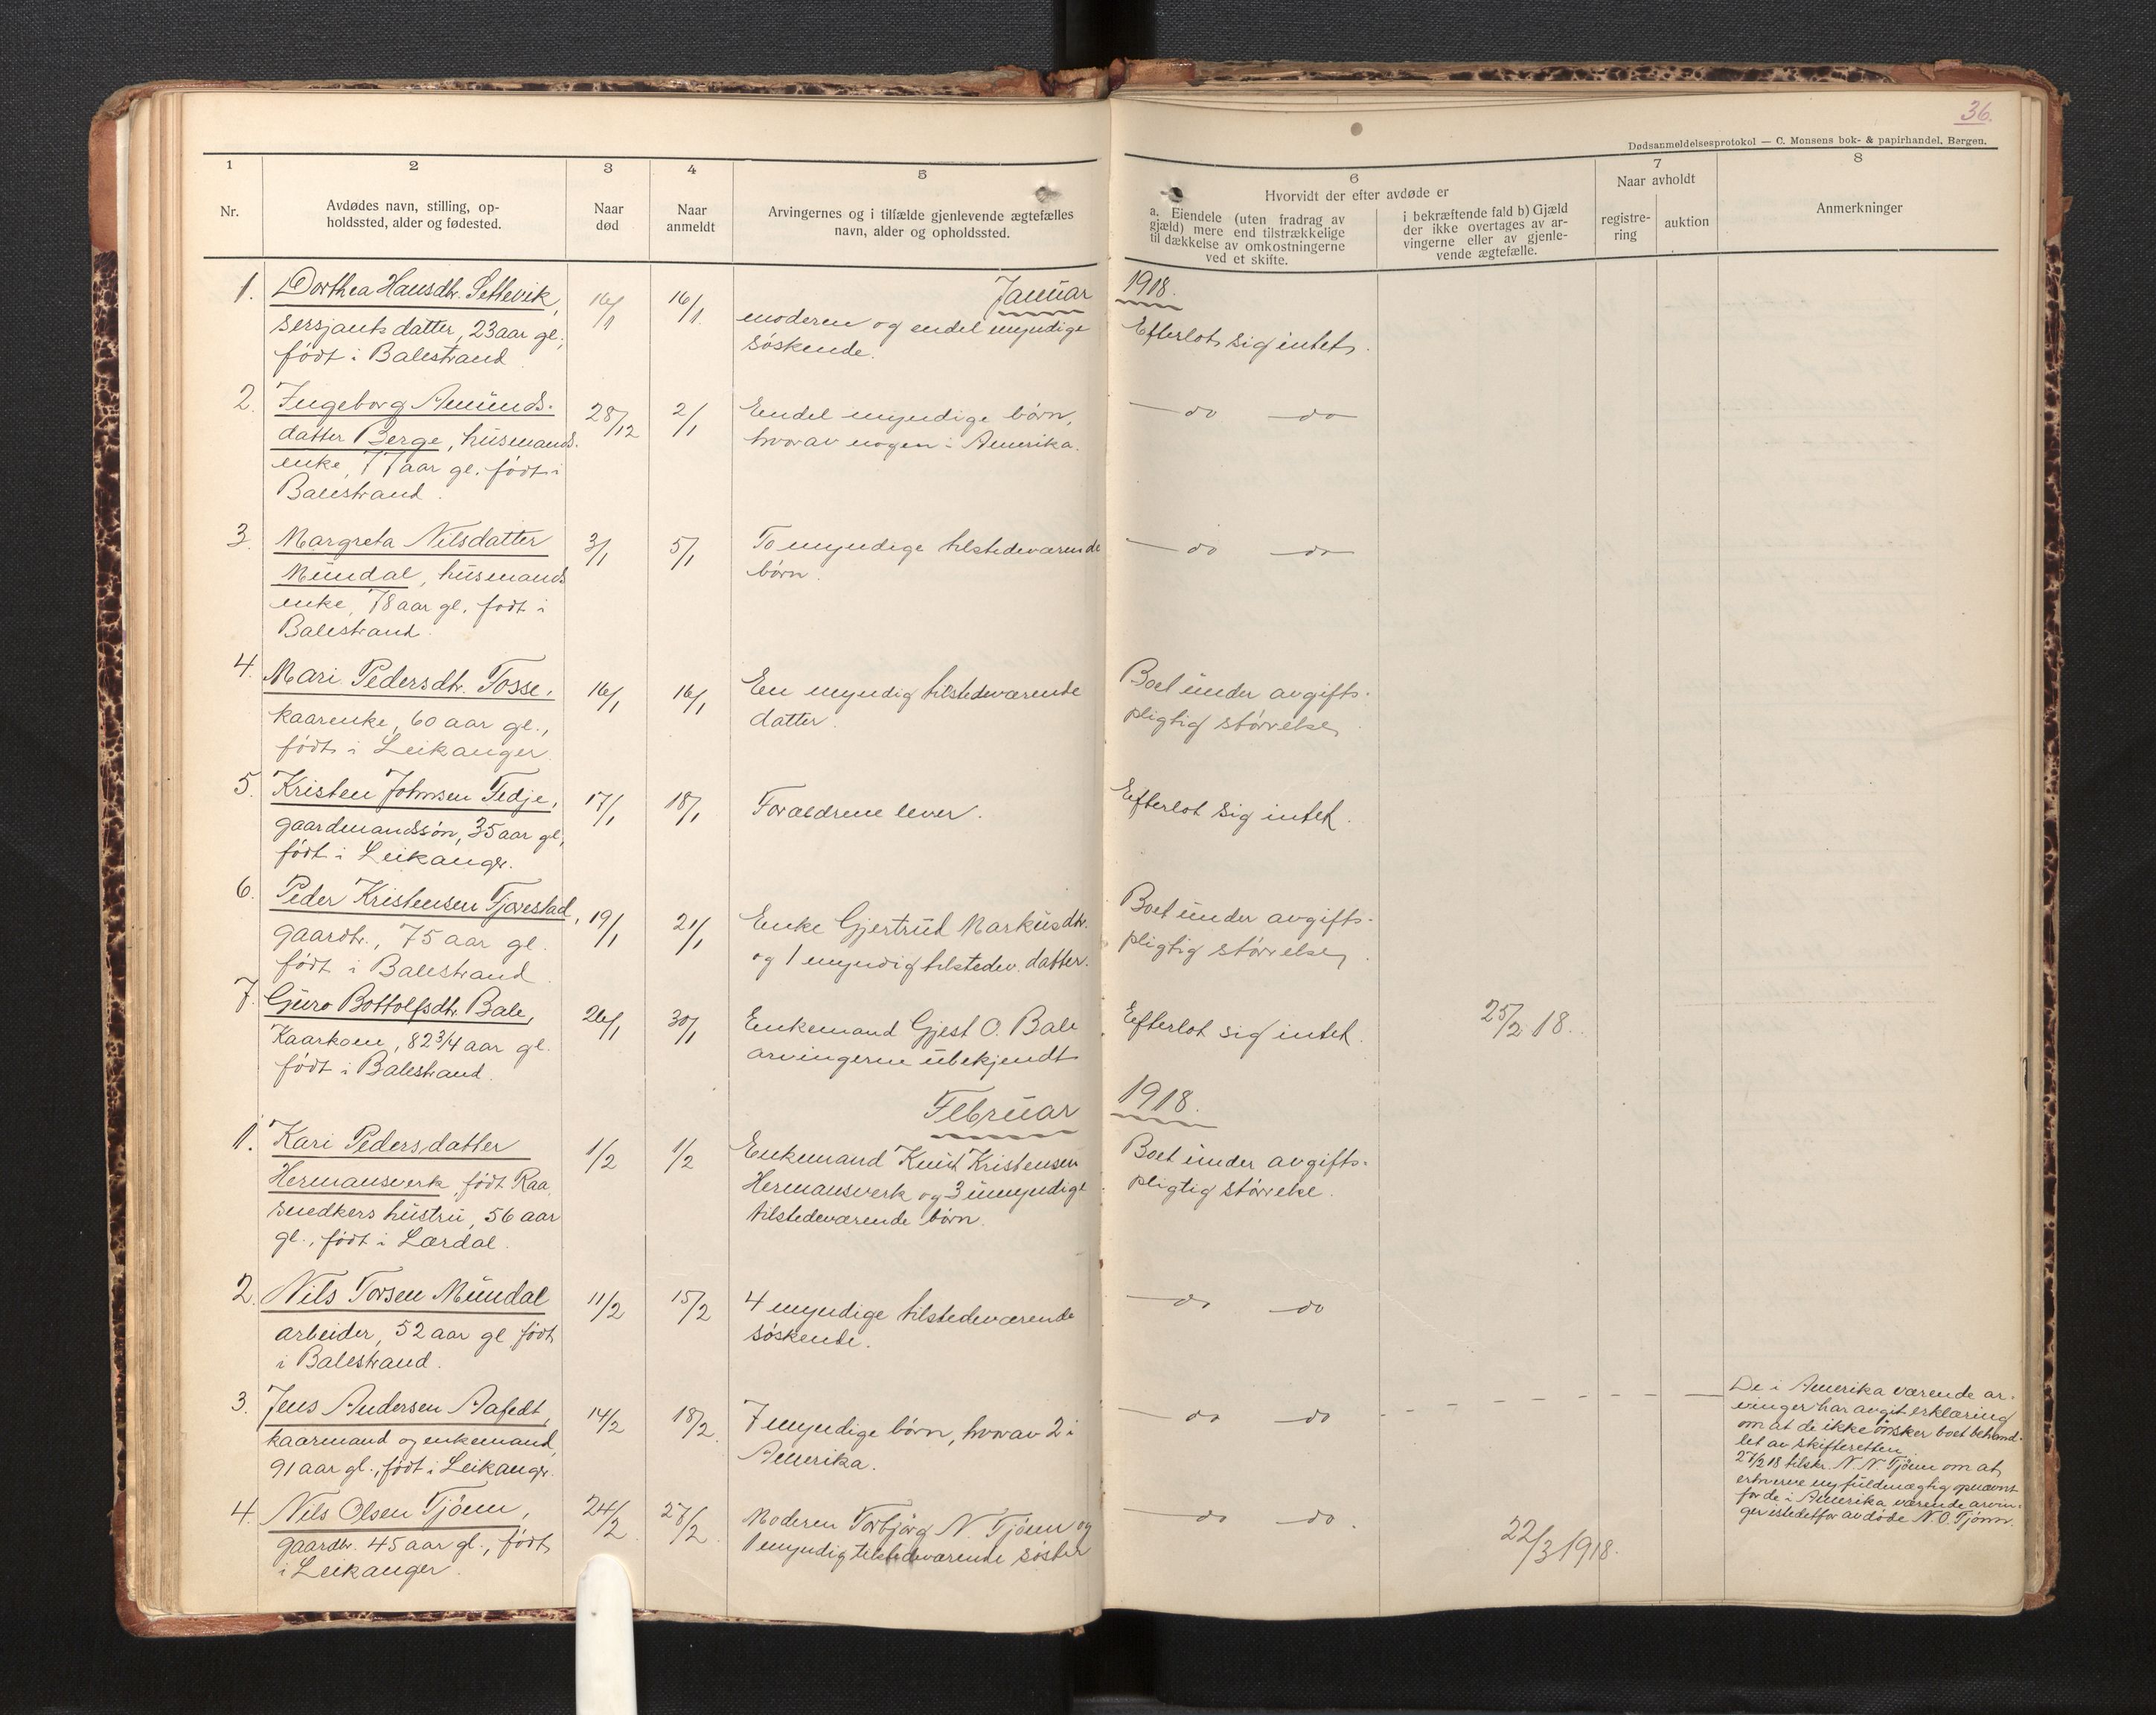 36.
Dødsanmeldelsesprotokol — C. Monsens bok- & papirhandel, Bergen.
1 2 3 4 5 6 7 8
Nr.
Avdødes navn, stilling, op-
holdssted, alder og fødested.
Naar
død
Naar
anmeldt
Arvingernes og i tilfælde gjenlevende ægtefælles
navn, alder og opholdssted.
Hvorvidt der efter avdøde er
a. Eiendele (uten fradrag av
gjæld) mere end tilstrækkelige
til dækkelse av omkostningerne
ved et skifte.
i bekræftende fald b) Gjæld
der ikke overtages av ar-
vingerne eller av gjenle-
vende ægtefælle.
Naar avholdt
registre-
ring
auktion
Anmerkninger
Januar 1918.
1. Dorthea Hansdtr. Settevik,
sersjants datter, 23 aar gl.,
født i Balestrand
16/1
16/1.
moderen og endel myndige
søskende.
Efterlot sig intet.
2. Ingeborg Amunds-
datter Berge, husmands-
enke, 77 aar gl. født i
Balestrand.
28/12
2/1
Endel myndige børn,
hvorav nogen i Amerika.
— do — do —
3. Margreta Nilsdatter
Mundal, husmands
enke, 78 aar gl. født i
Balestrand.
3/1
5/1
To myndige tilstedeværende
børn.
— do — do —
4. Mari Pedersdtr. Tosse,
kaarenke, 60 aar gl.,
født i Leikanger.
16/1
16/1
En myndig tilstedeværende
datter.
Boet under avgifts-
pligtig størrelse.
5. Kristen Johnsen Tedje,
gaardmandssøn, 35 aar gl.,
født i Leikangr.
17/1
18/1
Forældrene lever.
Efterlot sig intet.
6. Peder Kristensen Tjorestad,
gaardbr., 75 aar gl.
født i Balestrand
19/1
21/1
Enke Gjertrud Markusdtr.
og 1 myndig tilstedev. datter.
Boet under avgifts-
pligtig størrelse.
7. Guro Bottolfsdtr. Bale,
Kaarkone, 82 3/4 aar gl.
født i Balestrand.
26/1
30/1
Enkemand Gjest O. Bale
arvingerne ubekjendt
Efterlot sig intet.
25/2 18.
Februar 1918.
1. Kari Pedersdatter
Hermansverk, født Raa,
snedkers hustru, 56 aar
gl., født i Lærdal.
1/2
1/2
Enkemand Knut Kristensen
Hermansverk og 3 umyndige
tilstedeværende børn.
Boet under avgifts-
pligtig størrelse.
2. Nils Torsen Mundal
arbeider, 52 aar gl født
i Balestrand.
11/2
15/2
4 myndige tilstedeværende
søskende.
— do — do
3. Jens Andersen Aafedt,
kaarmand og enkemand,
91 aar gl., født i Leikangr.
14/2
18/2.
7 myndige børn, hvorav 2 i
Amerika.
— do — do
De i Amerika værende ar-
vinger har avgit erklæring
om at de ikke ønsker boet behand-
let av skifteretten.
27/2 18 tilskr. N. N. Tjønn om at
erhverve ny fuldmægtig opnævnt
for de i Amerika værende arvin-
ger istedetfor avdøde N. O. Tjønn.
4. Nils Olsen Tjønn,
gaardbr. 45 aar gl., født
i Leikanger.
24/2
28/2.
Moderen Torbjørg N. Tjønn og
1 myndig tilstedeværende søster
— do — do.
22/3 1918.